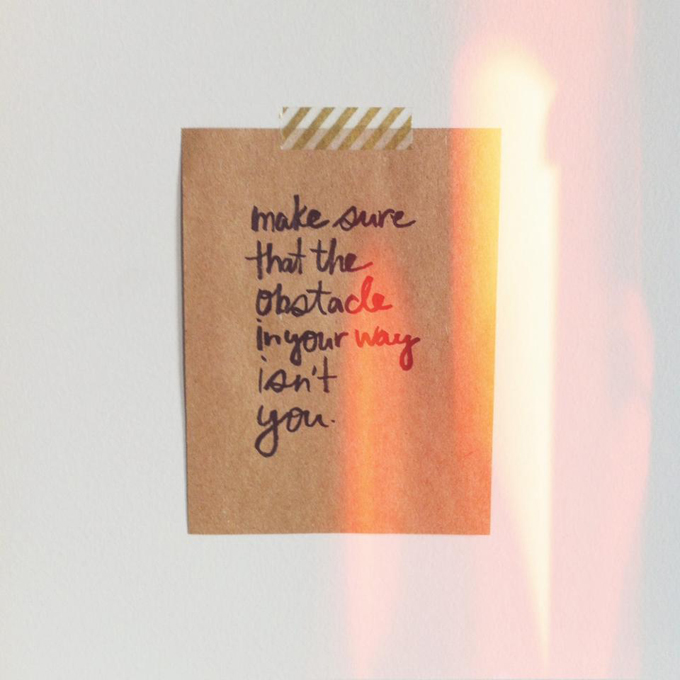 make sure
that the
obstacle
in your way
isn't
you.